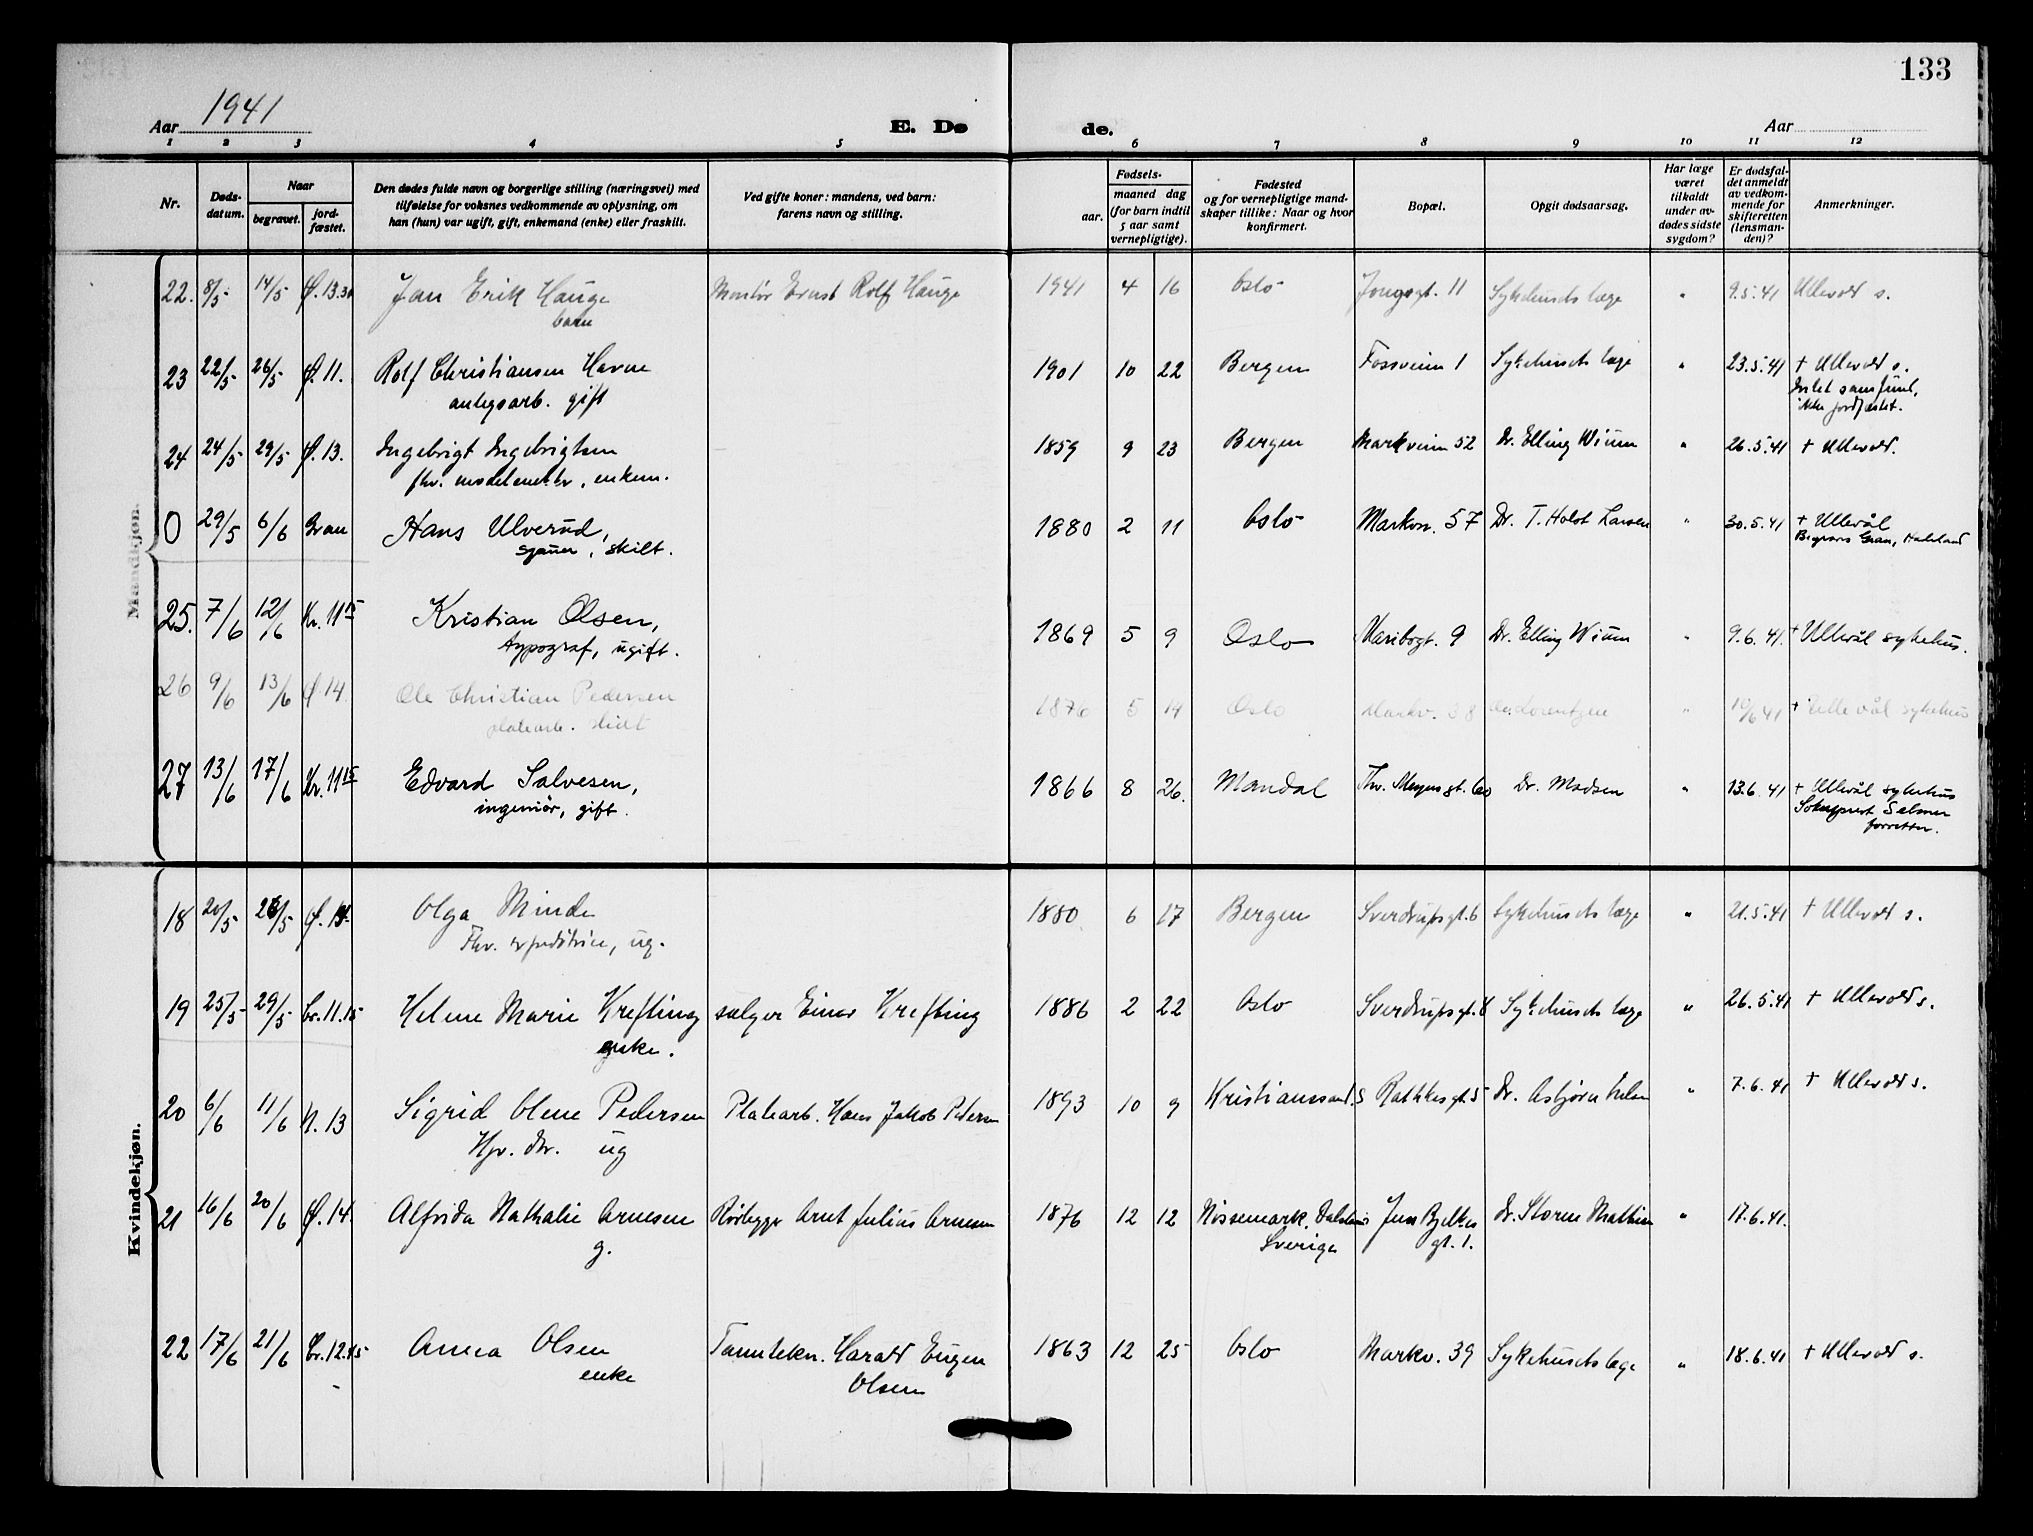 133
Aar 1941 E. Dø de. Aar
1 2 3 4 5 6 7 8 9 10 11 12
Nr.
Døds-
datum.
Naar
begravet.
jord-
fæstet.
Den dødes fulde navn og borgerlige stilling (næringsvei) med
tilføielse for voksnes vedkommende av oplysning, om
han (hun) var ugift, gift, enkemand (enke) eller fraskilt.
Ved gifte koner: mandens, ved barn:
farens navn og stilling.
Fødsels-
aar.
maaned dag
(for barn indtil
5 aar samt
vernepligtige).
Fødested
og for vernepligtige mand-
skaper tillike: Naar og hvor
konfirmert.
Bopæl.
Opgit dødsaarsag.
Har læge
været
tilkaldt
under av-
dødes sidste
sygdom?
Er dødsfal-
det anmeldt
av vedkom-
mende for
skifteretten
(lensman-
den)?
Anmerkninger.
Mandkjøn.
22. 8/5 14/5 Ø. 13.30 Jan Erik Hauge Montør Ernst Rolf Hauge 1941 4 16 Oslo Jongsgt. 11 Sykehusets læge " 9.5.41 Ullevold s.
barn
23 22/5 26/5 Ø. 11. Rolf Christiansen Havne 1901 10 22 Bergen Fossveien 1 Sykehusets læge " 23.5.41 + Ullevold s.
anlegsarb. gift
Intet samfund,
ikke jordfæstet.
24 24/5 29/5 Ø. 13. Ingebrigt Ingebrigtsen 1859 9 23 Bergen Markveien 52 Dr. Elling Wium " 26.5.41 + Ullevold.
fhv. , enkem.
0 29/5 6/6 Gran Hans Ulverud, 1880 2 11 Oslo Markvn. 57 Dr. T. Holst Larsen " 30.5.41 + Ullevål
sjauer, skilt.
Begraves Gran, Hadeland
25. 7/6 12/6 Kr. 11 15 Kristian Olsen, 1869 5 9 Oslo Maribogt. 9 Dr. Elling Wium " 9.6.41. + Ullevål sykehus.
typograf, ugift.
26 9/6 13/6 Ø 14 Ole Christian Pedersen 1876 5 14 Oslo Markv. 38 Lorentzen " 10/6 41 + Ullevål sykehus
platearb. skilt
27 13/6 17/6 Kr. 11 15 Edvard Salvesen, 1866 8 26. Mandal Thv. Meyers gt. 60 Dr. Madsen " 13.6.41 + Ullevål sykehus
ingeniør, gift.
Sokneprest Selmer
forretter.
Kvindekjøn.
18 20/5 /5 Ø. Olga Minde 1880 6 17 Bergen Sverdrupsgt. 6 Sykehusets læge " 21.5.41 + Ullevold s.
Fhv. expeditrice, ug.
19 25/5 29/5 Cr. 11.15 Helene Marie Krefting sælger Einar Krefting 1886 2 22 Oslo Sverdrupsgt. 8 Sykehusets læge " 26.5.41 + Ullevold s.
enke.
20 6/6 11/6 N. 13 Sigrid Olene Pedersen Platearb. Hans Jakob Pedersen 1893 10 9 Kristianssand S Rathkesgt. 5 Dr. Asbjørn " 7.6.41 + Ullevold s.
Hjv. dtr. ug
21 16/6 20/6 Ø. 14. Alfrida Nathalie Arnesen Rørlegger Arnt Julius Arnesen 1876 12 12 Nössemark, Dalsland Jens Bjelkes Dr. Storm Mathisen " 17.6.41.
g. Sverige gt. 1.
22 17/6 21/6 Cr. 12.45 Anna Olsen Tanntekn. Harald Eugen 1863 12 25 Oslo Markv. 39 Sykehusets læge " 18.6.41 + Ullevold s.
enke Olsen